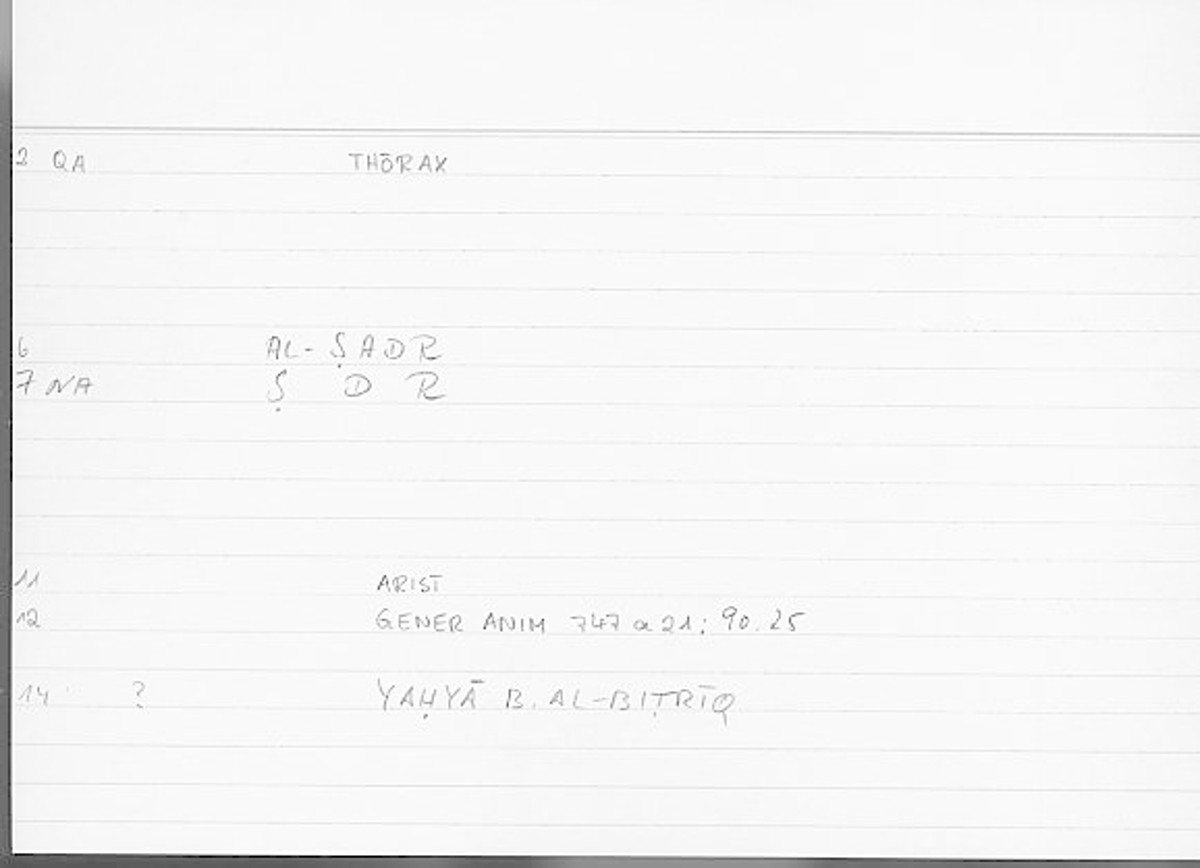 2 QA THŌRAX
6 AL-ṢADR
7 NA Ṣ D R
11 ARIST
12 GENER ANIM 747 a 21: 90.25
14 ? YAḤYĀ B. AL-BIṬRĪQ